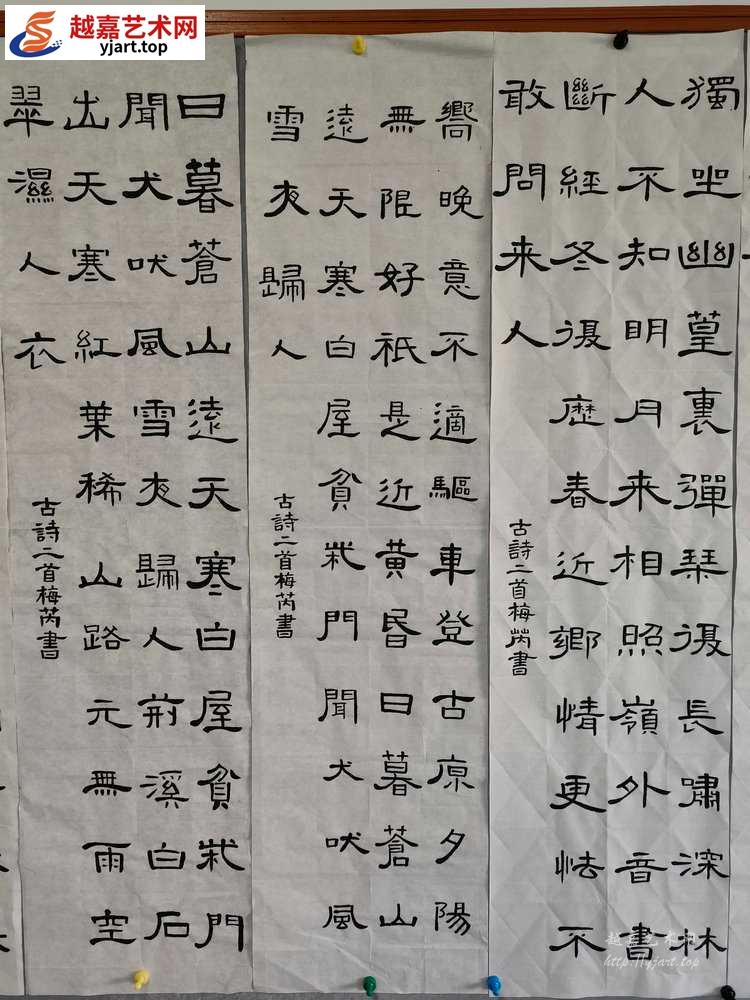 越嘉艺术网
yjart.top
獨坐幽篁裏彈琹復長嘯深林
人不知明月来相照嶺外音書
斷經冬復歷春近鄉情更怯不
敢問来人
古詩二首梅芮書
嚮晚意不適驅車登古原夕陽
無限好祇是近黃昏日暮蒼山
遠天寒白屋貧柴門聞犬吠風
雪夜歸人
古詩二首梅芮書
日暮蒼山遠天寒白屋貧柴門
聞犬吠風雪夜歸人荊溪白石
出天寒紅葉稀山路元無雨空
翠濕人衣
古詩二首梅芮書
越嘉艺术网
http://yjart.top